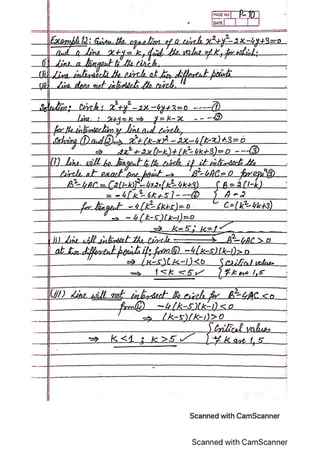 PAGE NO. P-10
DATE
Example 12: Given the equation of a circle x²+y²-2x-4y+3=0
and a line x+y=k, find the value of k, for which:
(i) Line a tangent to the circle.
(ii) Line intersects the circle at two different points
(iii) Line does not intersects the circle.
Solution: Circle: x²+y²-2x-4y+3=0 ---①
line: x+y=k ⇒ y=k-x ---②
for the intersection of line and circle,
Solving ① and ②→ x²+(k-x)²-2x-4(k-x)+3=0
⇒ 2x²+2x(1-k)+(k²-4k+3)=0 --③
(i) line will be tangent to the circle if it intersects the
circle at exact one point → B²-4AC=0 for eqn③
B²-4AC=(2(1-k))²-4x2x(k²-4k+3) { B=2(1-k)
= -4[k²-6k+5] --④ { A=2
for tangent -4(k²-6k+5)=0 { C=(k²-4k+3)
⇒ -4(k-5)(k-1)=0
⇒ k=5; k=1
ii) Line will intersect the circle → B²-4AC>0
at two different points if: from④ -4(k-5)(k-1)>0
⇒ (k-5)(k-1)<0 { Critical values
⇒ 1<k<5 ✓ { of k are 1,5
(iii) Line will not intersect the circle for B²-4AC<0
from④ -4(k-5)(k-1)<0
⇒ (k-5)(k-1)>0
{ Critical values
⇒ k<1 ; k>5 ✓ { of k are 1,5
Scanned with CamScanner
Scanned with CamScanner